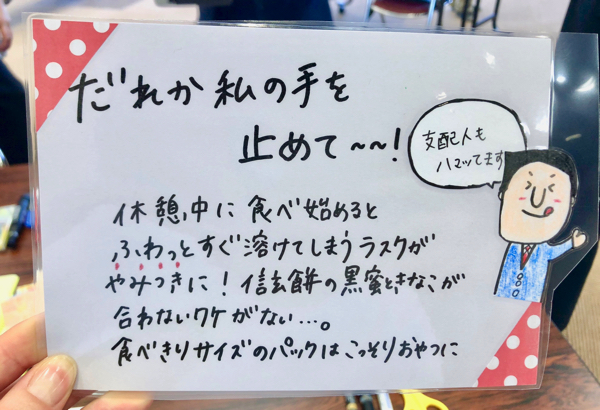 だれか私の手を
止めて~~!
支配人も
ハマッてます
休憩中に食べ始めると
ふわっとすぐ溶けてしまうラスクが
やみつきに!信玄餅の黒蜜ときなこが
合わないワケがない…。
食べきりサイズのパックはこっそりおやつに